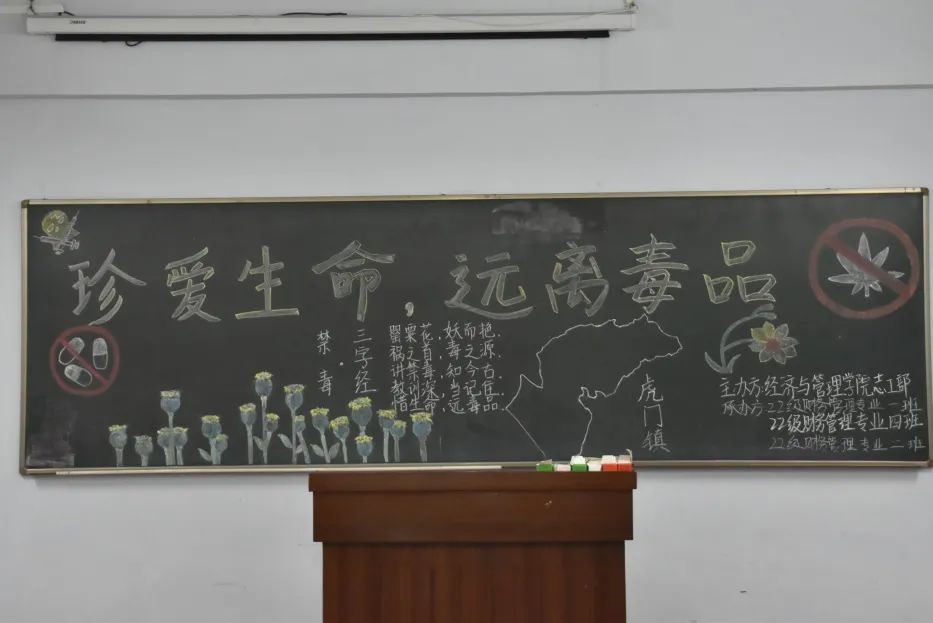 珍爱生命,远离毒品
三字经
·禁毒
罂粟花,妖而艳.
祸之首,毒之源.
讲禁毒,知今古.
教训深,当记
惜生命,远毒品.
虎门镇
主办方:经济与管理学院志工部
承办方:22级财务管理专业一班
22级财务管理专业四班
22级财务管理专业二班